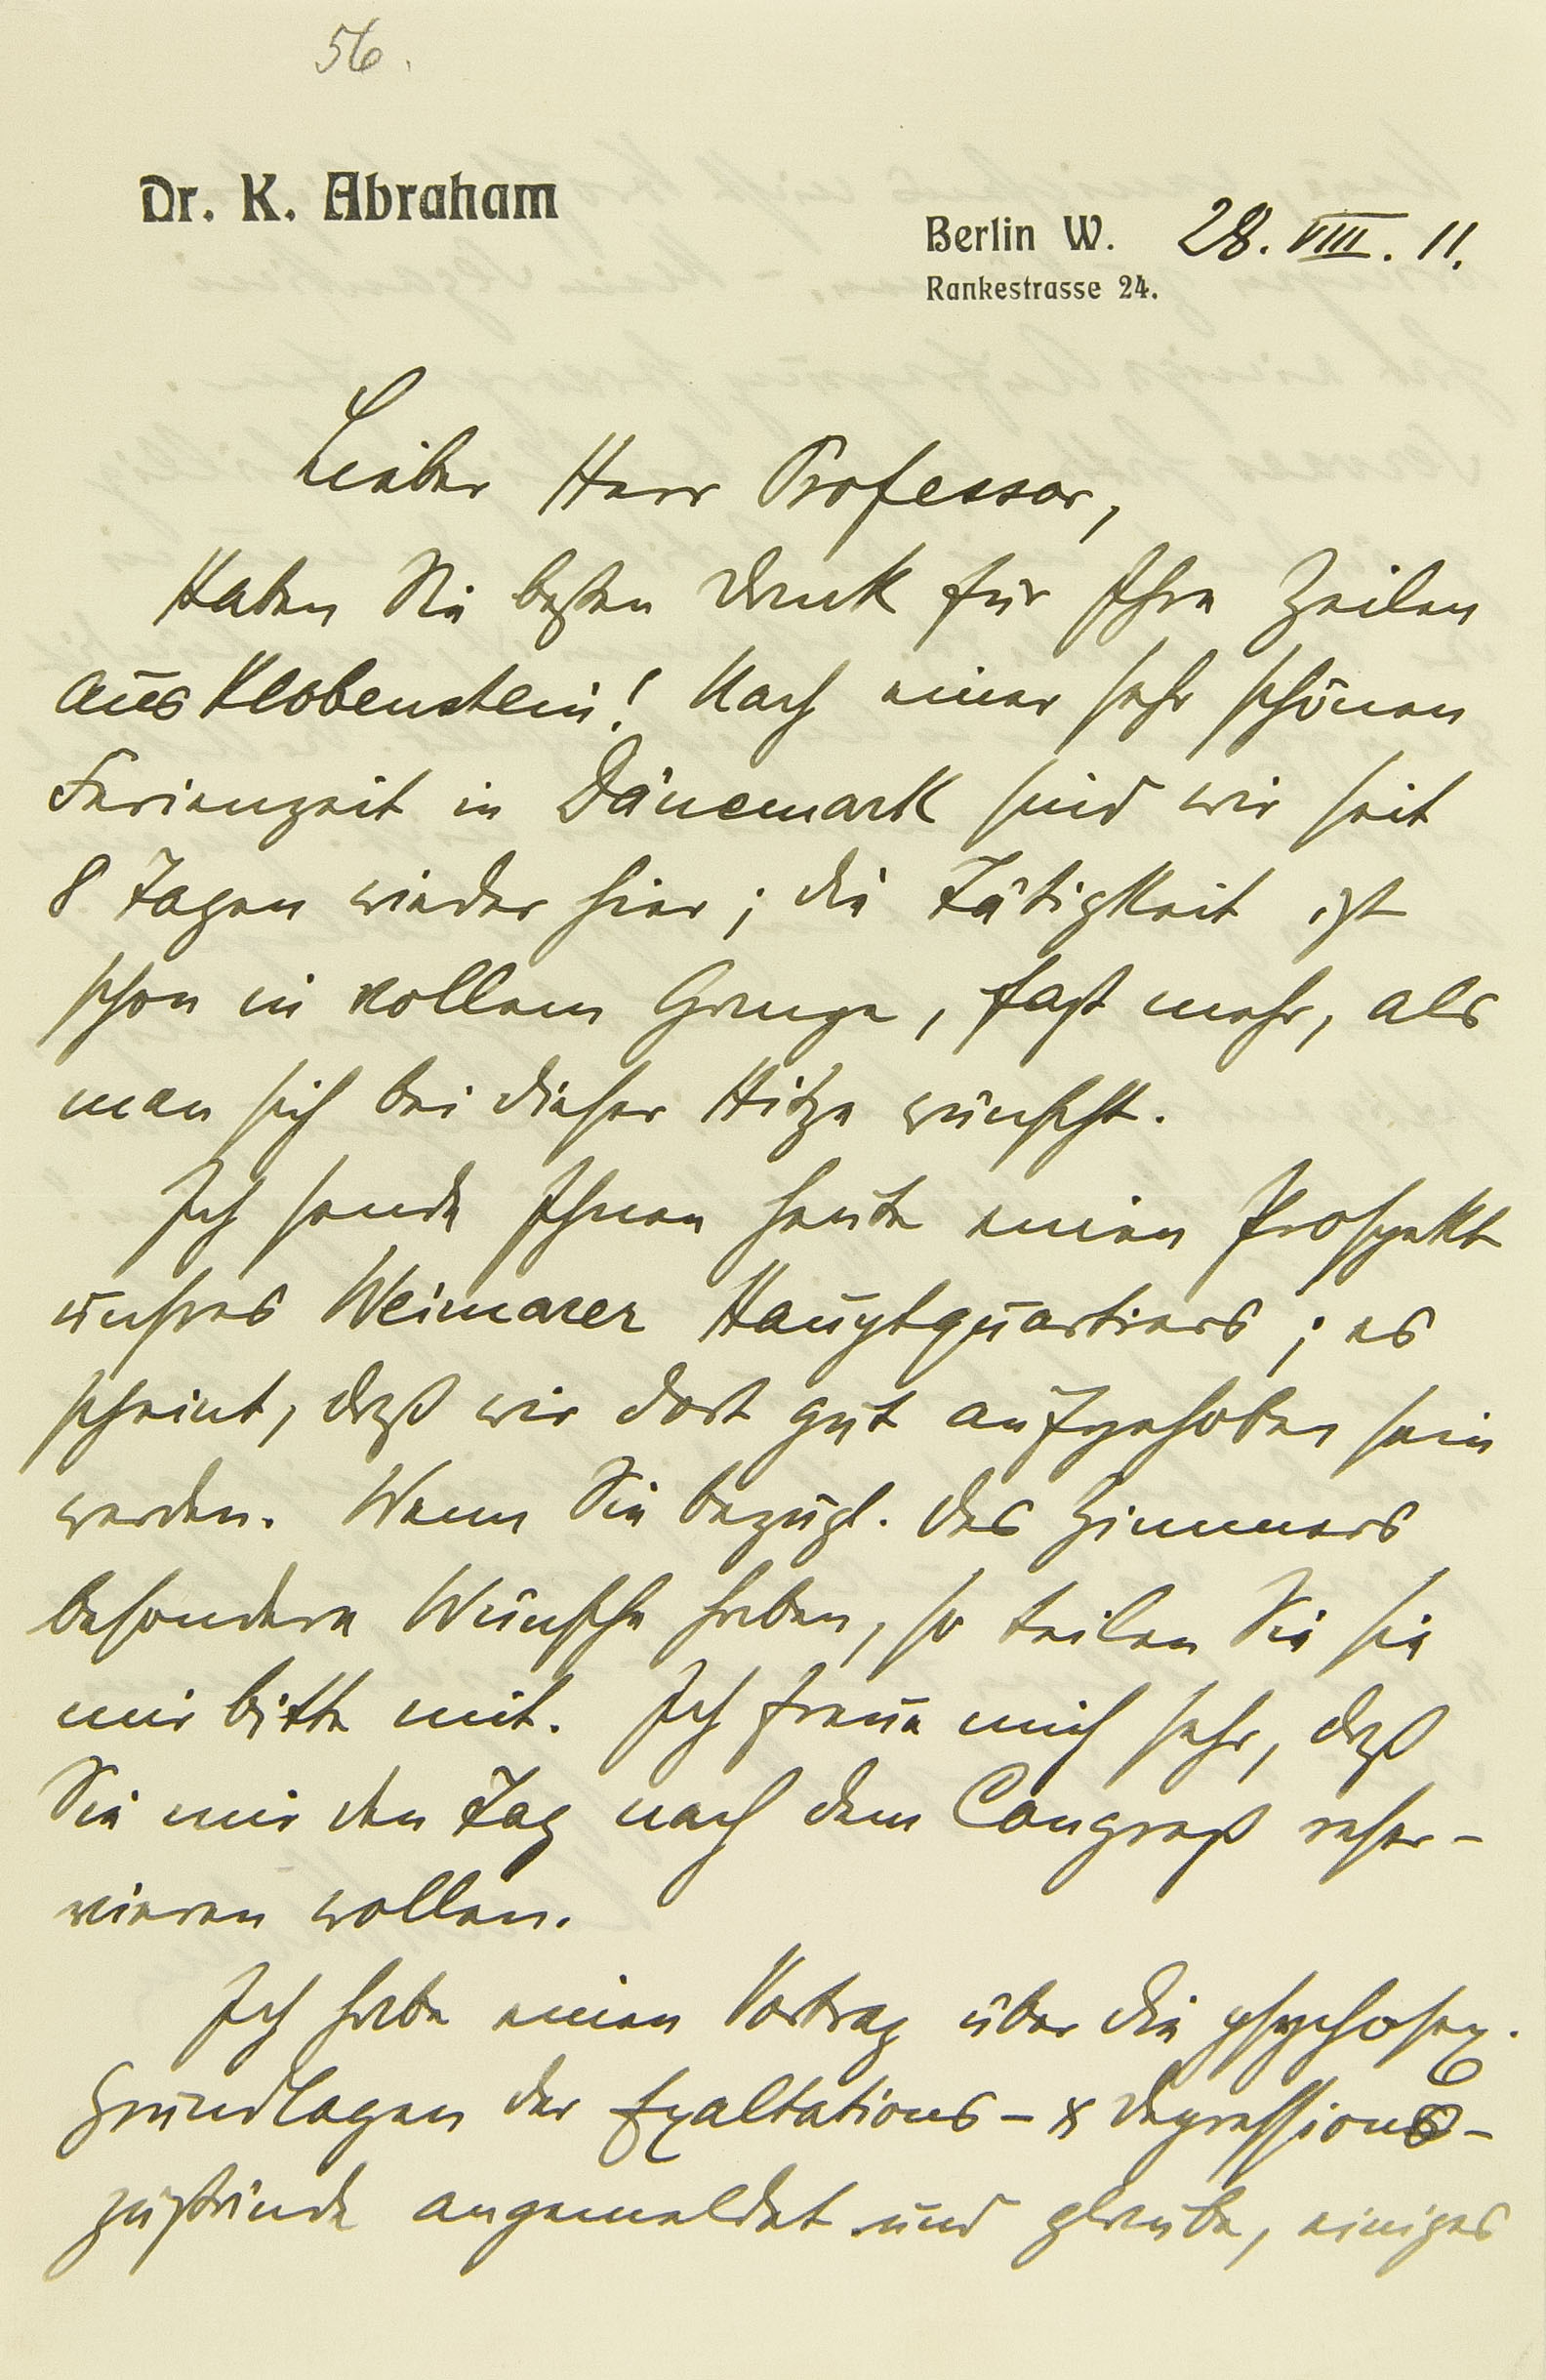 56.
Dr. K. Abraham
Berlin W. 28. VIII. 11.
Rankestrasse 24.
Lieber Herr Professor,
Haben Sie besten Dank für Ihre Zeilen
aus Klobenstein! Nach einer sehr schönen
Ferienzeit in Dänemark sind wir seit
8 Tagen wieder hier; die Tätigkeit ist
schon in vollem Gange, fast mehr, als
man sich bei dieser Hitze wünscht.
Ich sende Ihnen heute einen Prospekt
unsres Weimarer Hauptquartiers; es
scheint, daß wir dort gut aufgehoben sein
werden. Wenn Sie bezügl. des Zimmers
besondere Wünsche haben, so teilen Sie sie
mir bitte mit. Ich freue mich sehr, daß
Sie mir den Tag nach dem Congreß reser-
vieren wollen.
Ich habe einen Vortrag über die psychosex.
Grundlagen der Exaltations- & Depressions-
zustände angemeldet und glaube, einiges